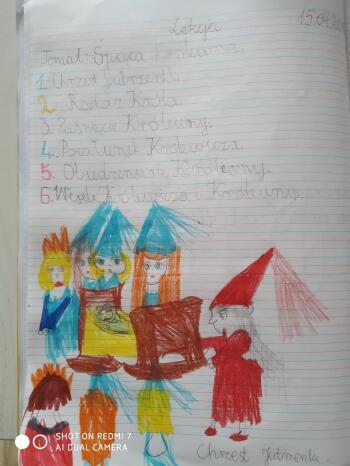 Lekcja 15.04
Temat: Śpiąca Królewna.
1. Chrzest Jutrzenki.
2. Rozkaz Króla.
3. Zaśnięcie Królewny.
4. Pocałunek Królewicza.
5. Obudzenie się Królewny.
6. Wesele Królewicza i Królewny.
Chrzest Jutrzenki
SHOT ON REDMI 7
AI DUAL CAMERA